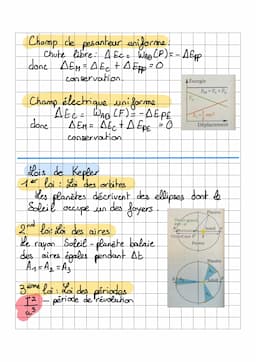 Champ de pesanteur uniforme:
Chute libre: ΔEc = WAB(P) = -ΔEpp
donc ΔEm = ΔEc + ΔEpp = 0
conservation
Énergie
Déplacement
Champ électrique uniforme
ΔEc = WAB(F) = -ΔEPE
donc ΔEm = ΔEc + ΔEPE = 0
conservation.
Lois de Kepler
1ère loi: Loi des orbites
Les planètes décrivent des ellipses dont le
Soleil occupe un des foyers.
2nd loi: Loi des aires
Le rayon Soleil-planète balaie
des aires égales pendant Δt
A1 = A2 = A3
Planète
3ème loi: Loi des périodes
T²/a³ - période de révolution